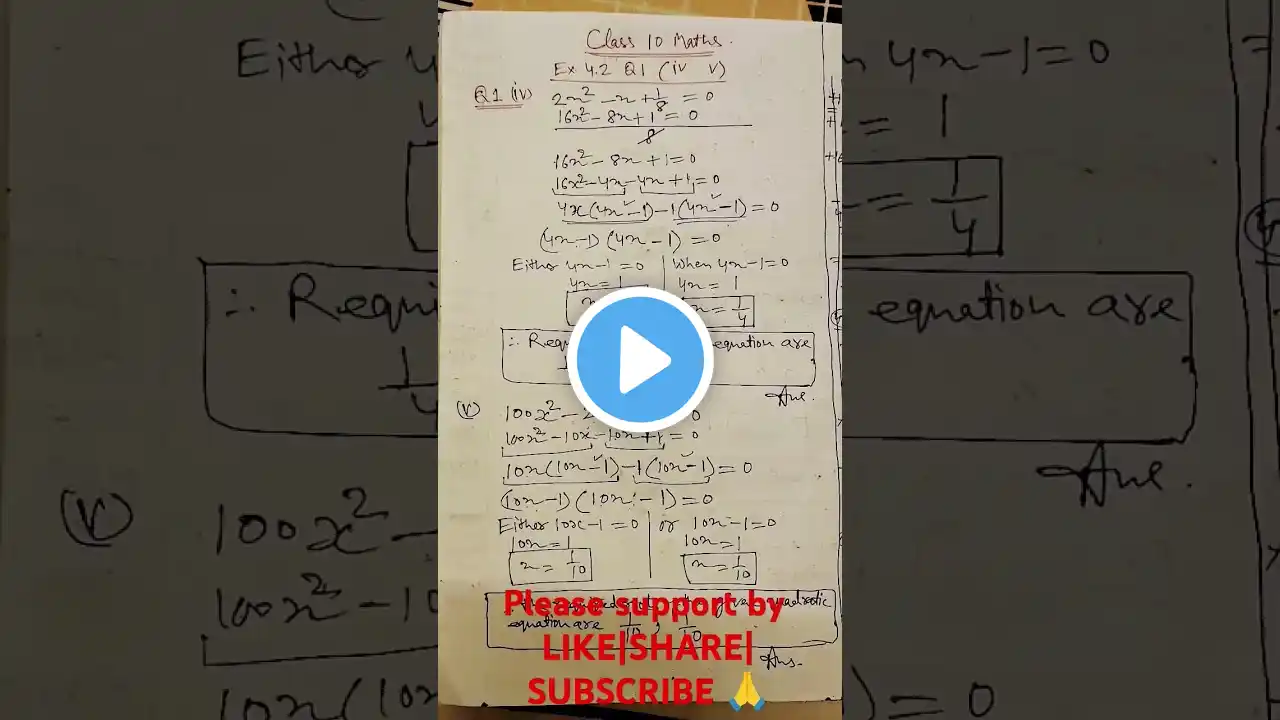 Class 10 Maths.
Ex 4.2 Q1 (iv v)
Q1 (iv) 2x² - x + 1/8 = 0
16x² - 8x + 1 = 0
8
16x² - 8x + 1 = 0
16x² - 4x - 4x + 1 = 0
4x(4x - 1) - 1(4x - 1) = 0
(4x - 1) (4x - 1) = 0
Either 4x - 1 = 0 | When 4x - 1 = 0
4x = 1 4x = 1
= 1/4
∴ equation are
Ans.
(v) 100x² - 0
100x² - 10x - 10x + 1 = 0
10x(10x - 1) - 1(10x - 1) = 0
(10x - 1) (10x - 1) = 0
Either 10x - 1 = 0 | or 10x - 1 = 0
10x = 1 10x = 1
x = 1/10 x = 1/10
quadratic
equation are 1/10 , 1/10
Ans.
Please support by
LIKE|SHARE|
SUBSCRIBE 🙏